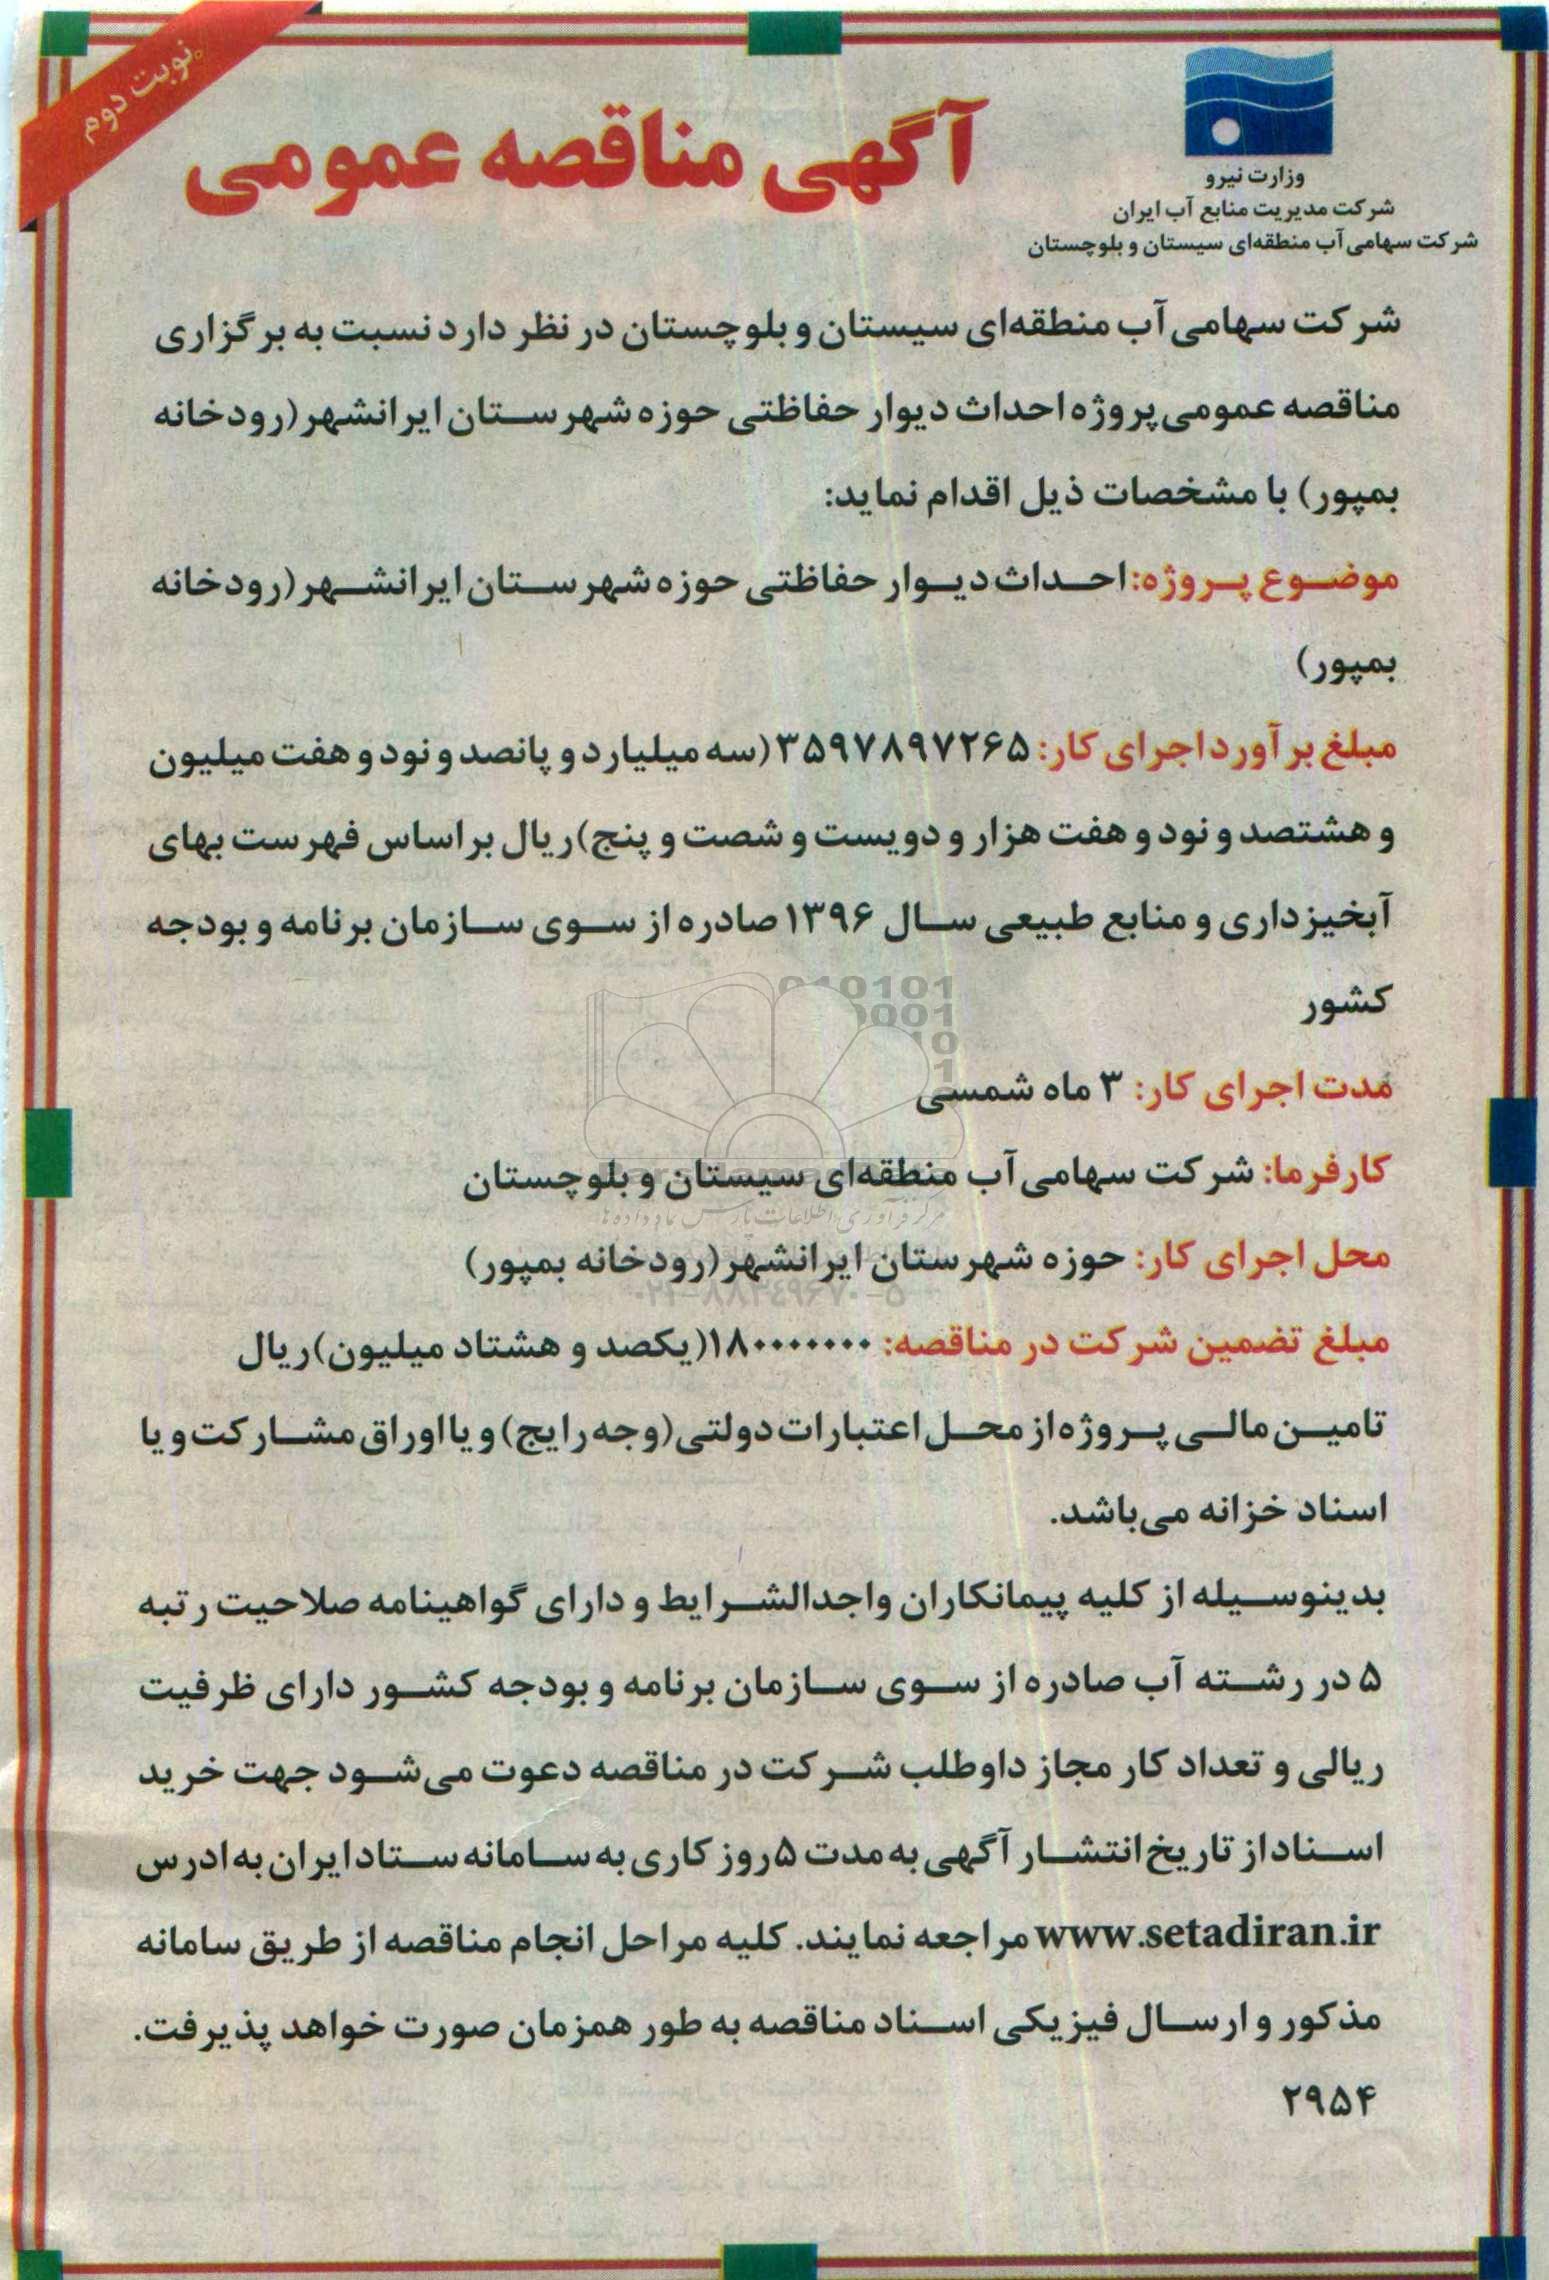 نوبت دوم
آگهی مناقصه عمومی
وزارت نیرو
شرکت مدیریت منابع آب ایران
شرکت سهامی آب منطقه‌ای سیستان و بلوچستان
شرکت سهامی آب منطقه‌ای سیستان و بلوچستان در نظر دارد نسبت به برگزاری
مناقصه عمومی پروژه احداث دیوار حفاظتی حوزه شهرستان ایرانشهر (رودخانه
بمپور) با مشخصات ذیل اقدام نماید:
موضوع پروژه: احداث دیوار حفاظتی حوزه شهرستان ایرانشهر (رودخانه
بمپور)
مبلغ برآورد اجرای کار: ۳۵۹۷۸۹۷۲۶۵ (سه میلیارد و پانصد و نود و هفت میلیون
و هشتصد و نود و هفت هزار و دویست و شصت و پنج) ریال بر اساس فهرست بهای
آبخیزداری و منابع طبیعی سال ۱۳۹۶ صادره از سوی سازمان برنامه و بودجه
کشور
010101
0001
10
1
مدت اجرای کار: ۳ ماه شمسی
کارفرما: شرکت سهامی آب منطقه‌ای سیستان و بلوچستان
مرکز فرآوری اطلاعات پارس نماد داده ها
محل اجرای کار: حوزه شهرستان ایرانشهر (رودخانه بمپور)
۰۲۱-۸۸۳۴۹۶۷۰-۵
مبلغ تضمین شرکت در مناقصه: ۱۸۰۰۰۰۰۰۰ (یکصد و هشتاد میلیون) ریال
تامین مالی پروژه از محل اعتبارات دولتی (وجه رایج) و یا اوراق مشارکت و یا
اسناد خزانه می‌باشد.
بدینوسیله از کلیه پیمانکاران واجدالشرایط و دارای گواهینامه صلاحیت رتبه
۵ در رشته آب صادره از سوی سازمان برنامه و بودجه کشور دارای ظرفیت
ریالی و تعداد کار مجاز داوطلب شرکت در مناقصه دعوت می‌شود جهت خرید
اسناد از تاریخ انتشار آگهی به مدت ۵ روز کاری به سامانه ستاد ایران به ادرس
www.setadiran.ir مراجعه نمایند. کلیه مراحل انجام مناقصه از طریق سامانه
مذکور و ارسال فیزیکی اسناد مناقصه به طور همزمان صورت خواهد پذیرفت.
۲۹۵۴